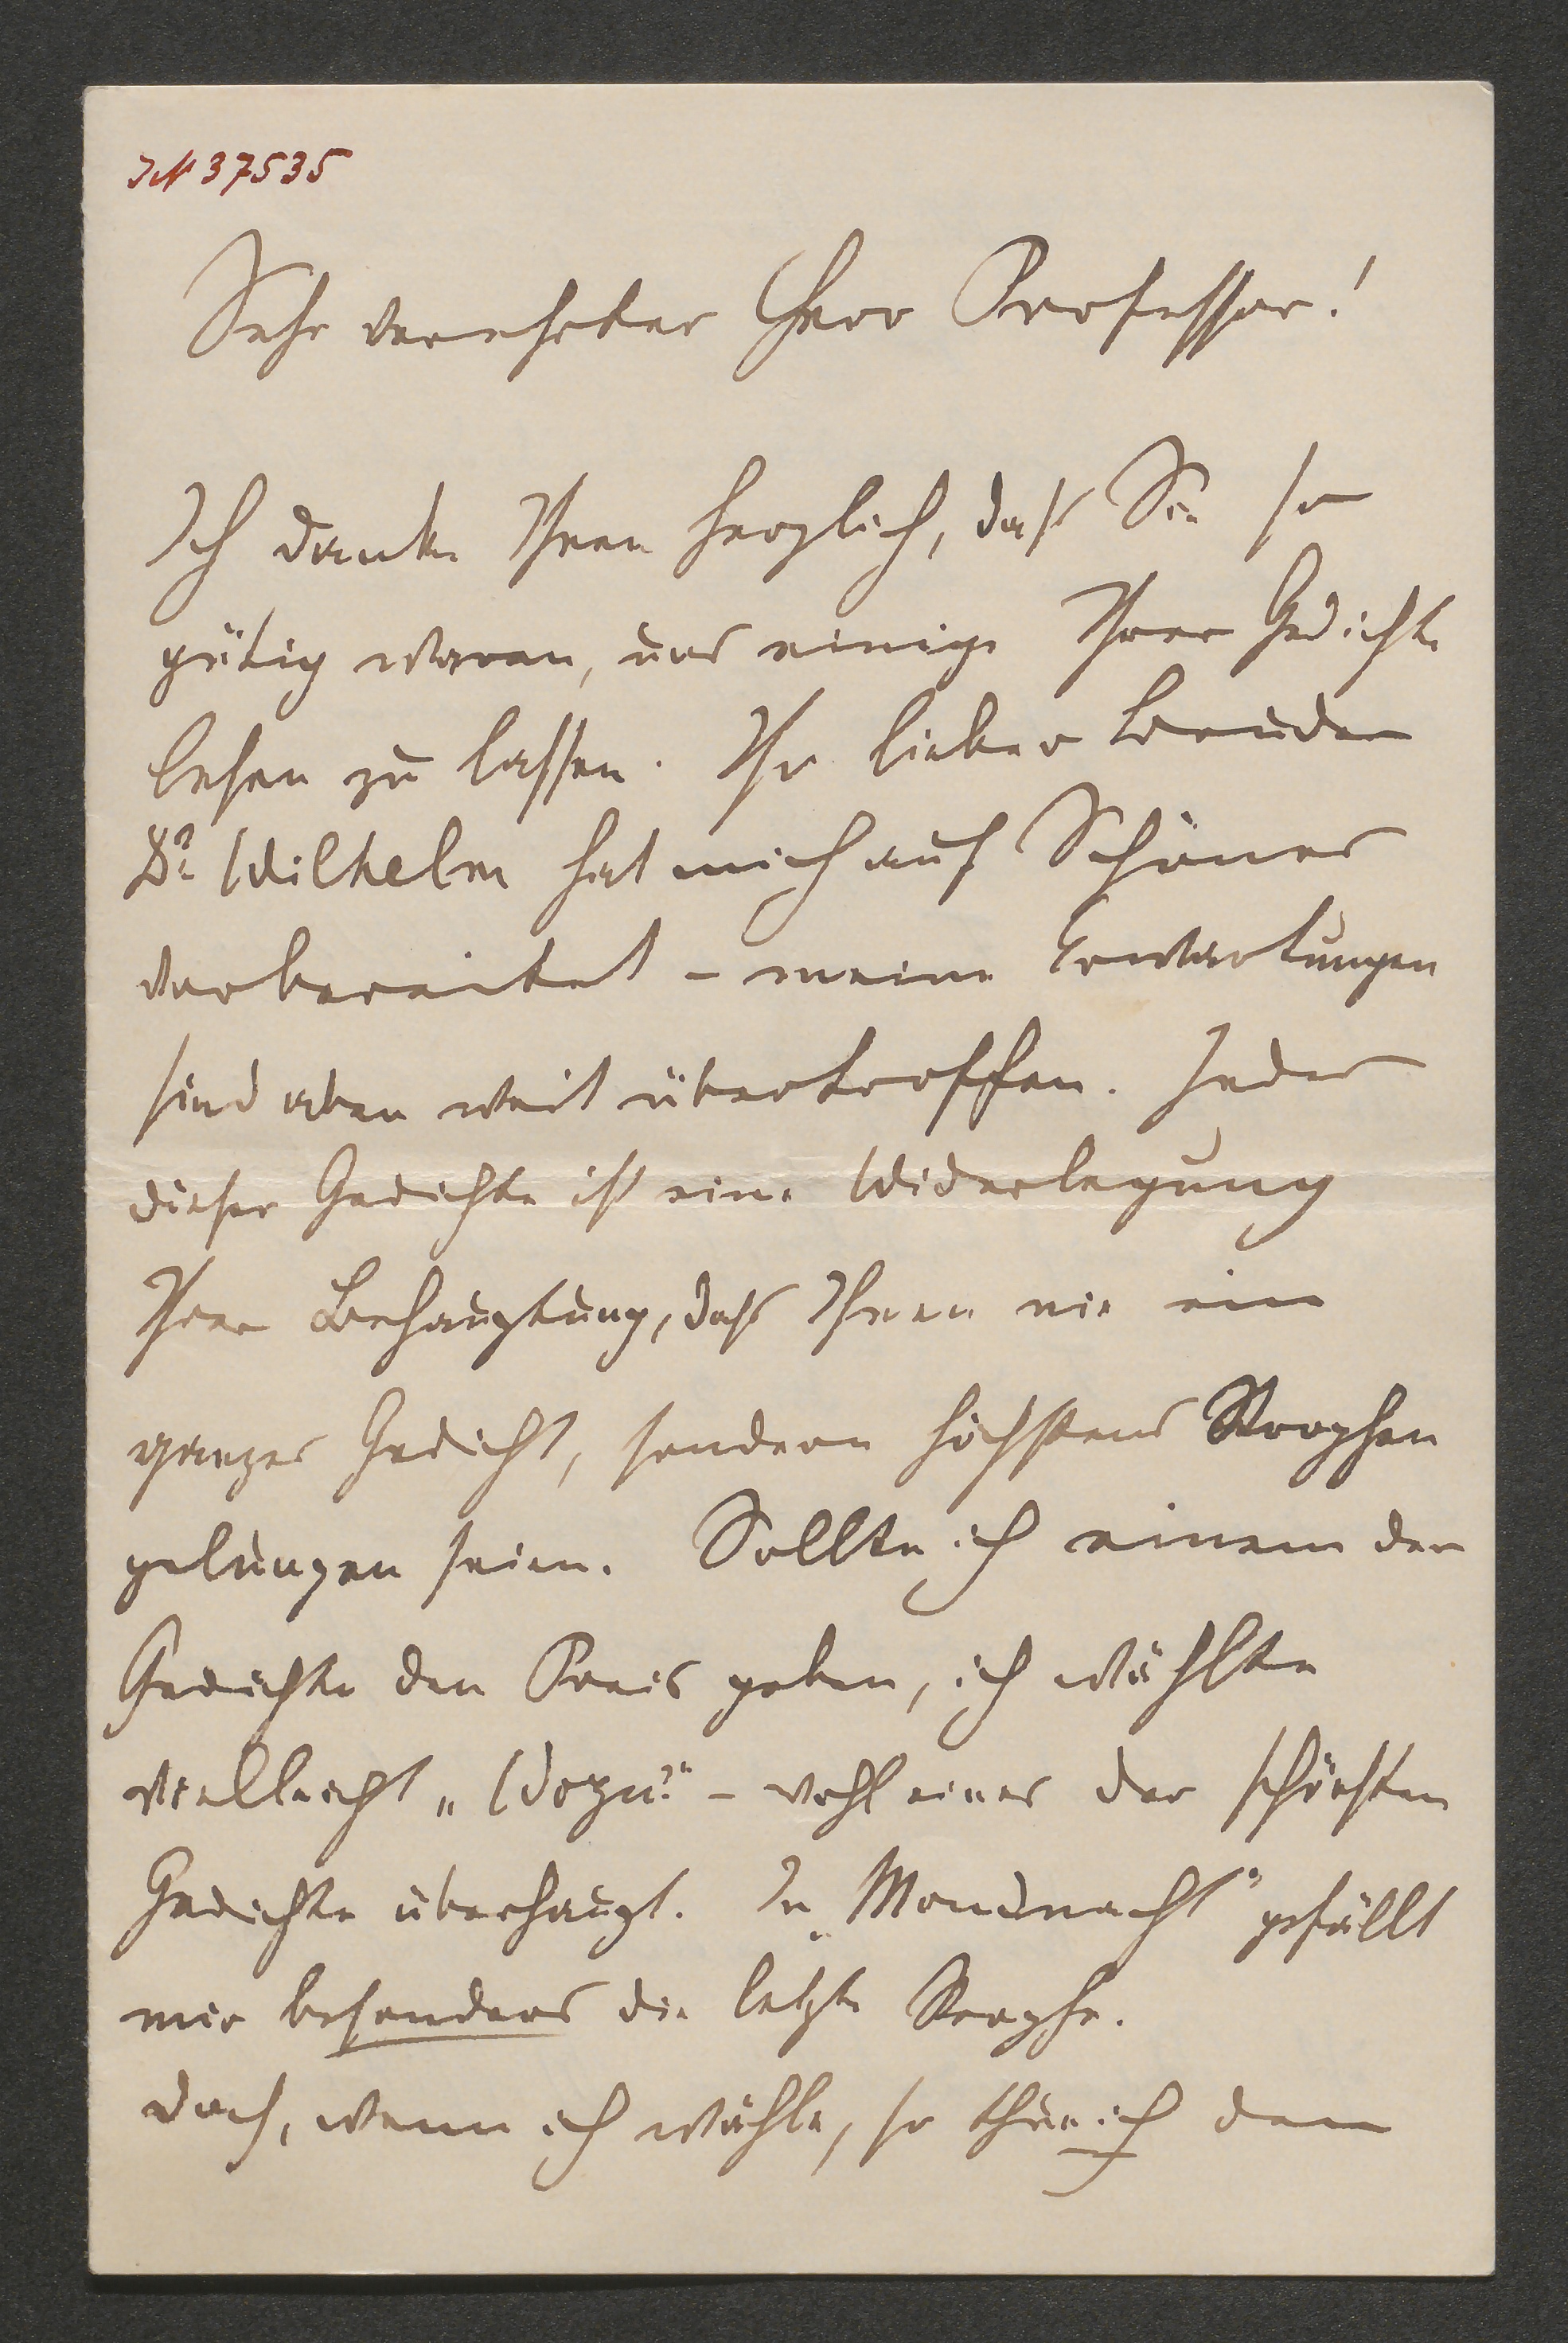 IN 37535
Sehr verehrter Herr Professor!
Ich danke Ihnen herzlich, daß Sie so
gütig waren, uns einige Ihrer Gedichte
lesen zu lassen. Ihr lieber Bruder
Dr. Wilhelm hat mich auf Schönes
vorbereitet – meine Erwartungen
sind aber weit übertroffen. Jedes
dieser Gedichte ist eine Widerlegung
Ihrer Behauptung, daß Ihnen nie ein
ganzes Gedicht, sondern höchstens Strophen
gelungen seien. Sollte ich einem der
Gedichte den Preis geben, ich wählte
vielleicht „Wozu?“ – wohl eines der schönsten
Gedichte überhaupt. In „Mondnacht“ gefällt
mir besonders die letzte Strophe.
Doch, wenn ich wähle, so thue ich dem